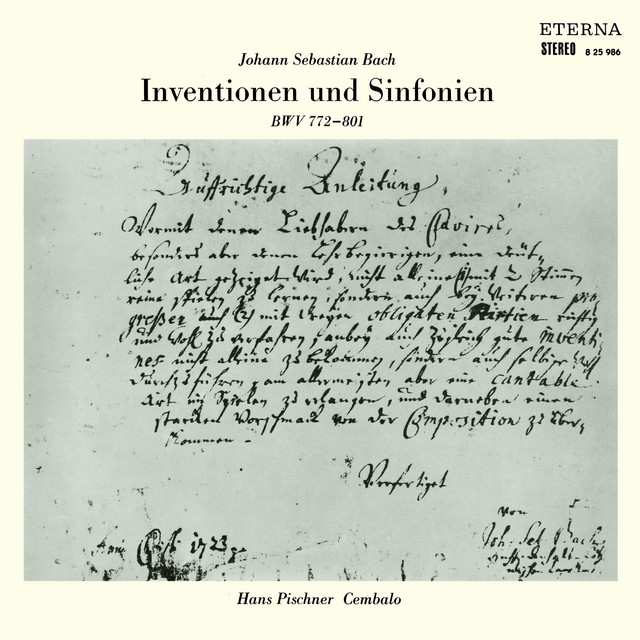 ETERNA
STEREO 8 25 986
Johann Sebastian Bach
Inventionen und Sinfonien
BWV 772–801
Auffrichtige Anleitung,
Wormit denen Liebhabern des Clavires,
besonders aber denen Lehrbegierigen, eine deüt-
liche Art gezeiget wird, nicht alleine (1) mit 2 Stimen
reine spielen zu lernen, sondern auch bey weiteren pro-
greßen auf (2) mit dreyen obligaten Partien richtig
und wohl zu verfahren, anbey auch zugleich gute inventi-
ones nicht alleine zu bekommen, sondern auch selbige wohl
durchzuführen, am allermeisten aber eine cantable
Art im Spielen zu erlangen, und darneben einen
starcken Vorschmack von der Composition zu über-
kommen.
Verfertiget
von
Anno Christi 1723.
Joh: Seb: Bach
Hans Pischner Cembalo